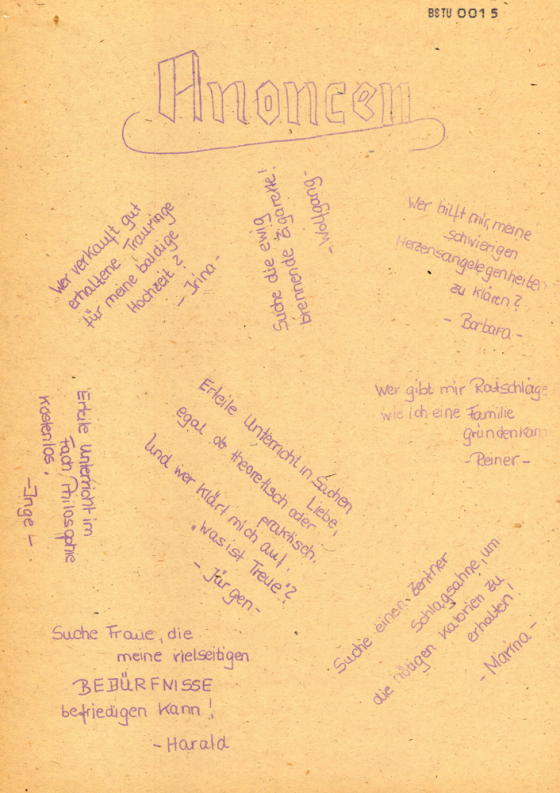 BSTU 0015
Anoncen
Wer verkauft gut
erhaltene Trauringe
für meine baldige
Hochzeit?
- Irina -
Suche die ewig
brennende Zigarette!
- Wolfgang -
Wer hilft mir, meine
schwierigen
Herzensangelegenheiten
zu klären?
- Barbara -
Erteile Unterricht im
Fach Philosophie
kostenlos.
- Inge -
Erteile Unterricht in Suchen
Liebe,
egal ob theoretisch oder
praktisch.
Und wer klärt mich auf
"was ist Treue"?
- Jürgen -
Wer gibt mir Ratschläge
wie ich eine Familie
gründen kann
- Reiner -
Suche einen Zentner
Schlagsahne, um
die nötigen Kalorien zu
erhalten!
- Marina -
Suche Fraue, die
meine vielseitigen
BEDÜRFNISSE
befriedigen kann!
- Harald